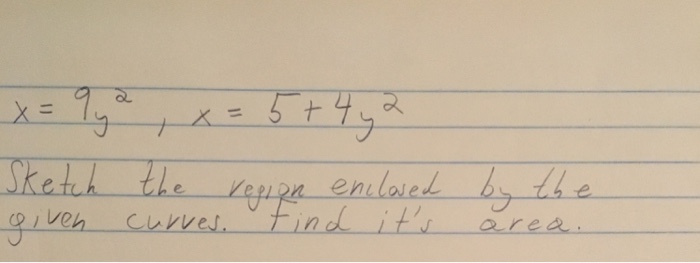 x = 9y², x = 5+4y²
Sketch the region enclosed by the
given curves. Find it's area.